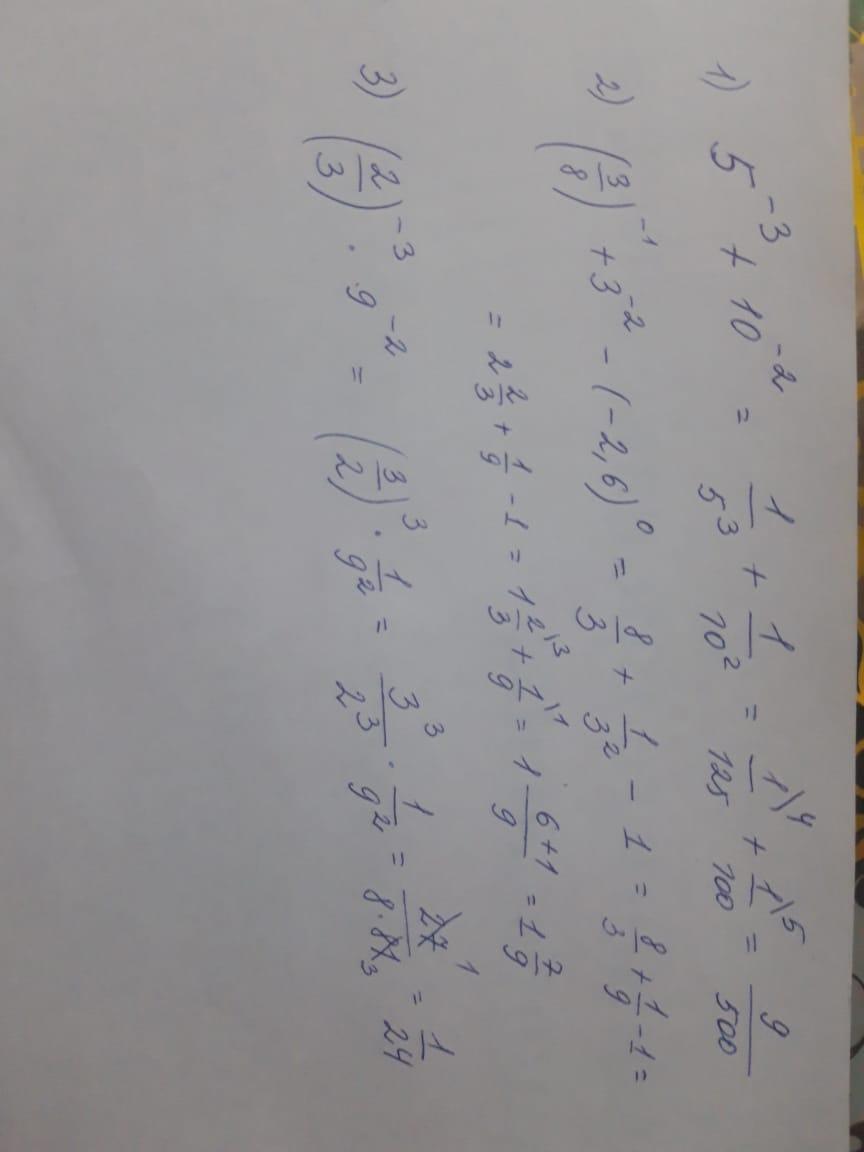 1) 5⁻³ + 10⁻² = 1/5³ + 1/10² = 1\⁴/125 + 1\⁵/100 = 9/500
2) (3/8)⁻¹ + 3⁻² - (-2,6)⁰ = 8/3 + 1/3² - 1 = 8/3 + 1/9 - 1 =
= 2 2/3 + 1/9 - 1 = 1 2\³/3 + 1\¹/9 = 1 (6+1)/9 = 1 7/9
3) (2/3)⁻³ · 9⁻² = (3/2)³ · 1/9² = 3³/2³ · 1/9² = 27¹/(8·81₃) = 1/24